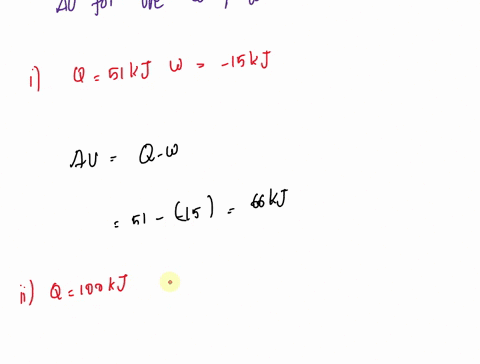 ΔU for
i) Q = 51 kJ w = -15 kJ
ΔU = Q - w
= 51 - (-15) = 66 kJ
ii) Q = 100 kJ